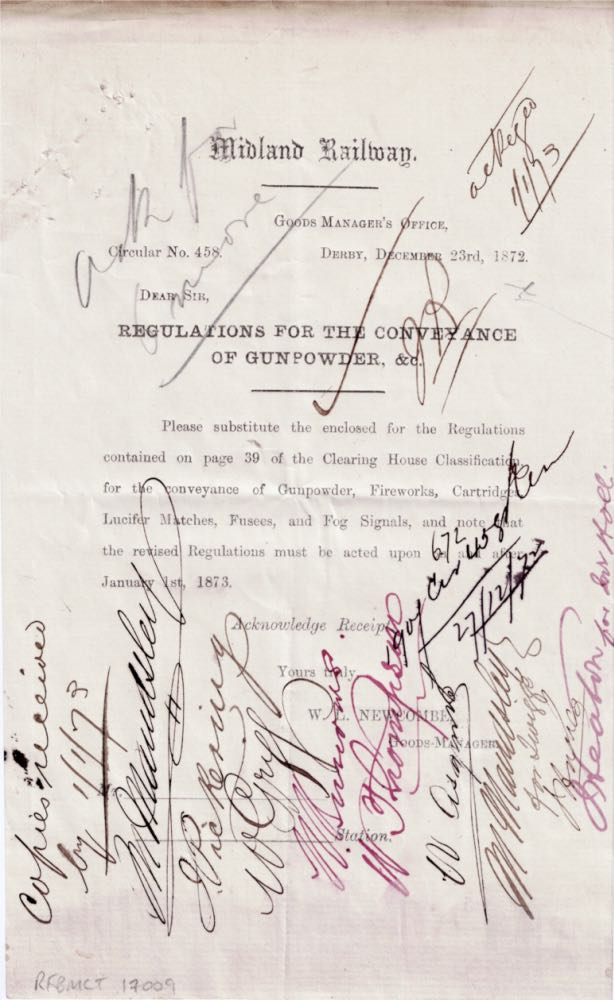 Midland Railway.
Goods Manager's Office,
Circular No. 458. Derby, December 23rd, 1872.
Dear Sir,
REGULATIONS FOR THE CONVEYANCE
OF GUNPOWDER, &c.
Please substitute the enclosed for the Regulations
contained on page 39 of the Clearing House Classification
for the conveyance of Gunpowder, Fireworks, Cartridges
Lucifer Matches, Fusees, and Fog Signals, and note that
the revised Regulations must be acted upon on and after
January 1st, 1873.
Acknowledge Receipt
Yours truly,
W. L. NEWCOMBE,
Goods-Manager
Station.
1/1/73
672
27/12/72
Copies received
by 1/1/73
Pickering
W Griff
W Thompson
Heaton for
RFBMCT 17009